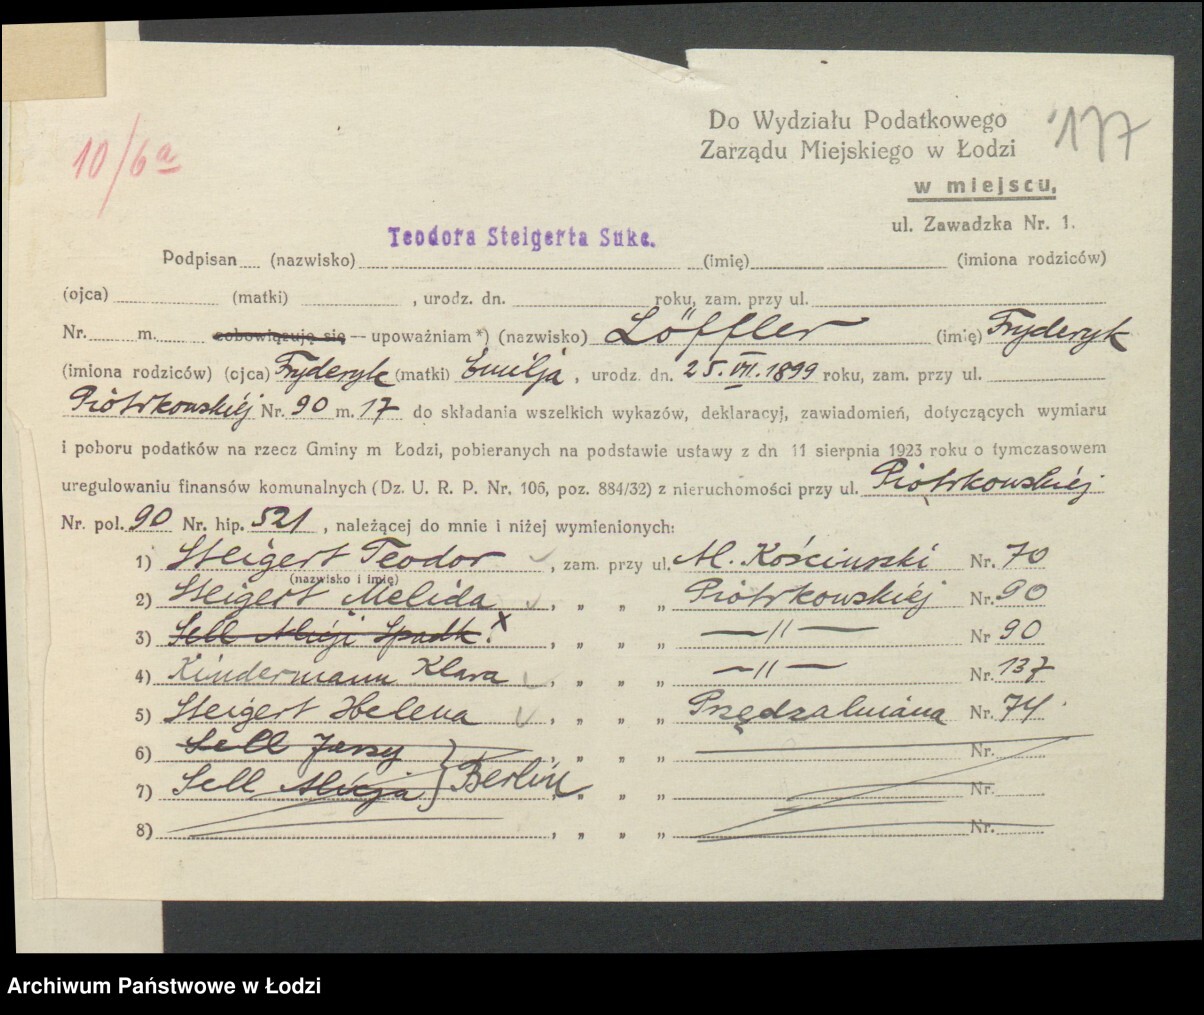 10/6a
177
Do Wydziału Podatkowego
Zarządu Miejskiego w Łodzi
w miejscu,
ul. Zawadzka Nr. 1.
Teodora Steigerta Sukc.
Podpisan (nazwisko) (imię) (imiona rodziców)
(ojca) (matki) , urodz. dn. roku, zam. przy ul.
Nr. m. zobowiązuję się — upoważniam *) (nazwisko) Löffler (imię) Fryderyk
(imiona rodziców) (ojca) Fryderyk (matki) Emilja, urodz. dn. 25.VII.1899 roku, zam. przy ul.
Piotrkowskiéj Nr. 90 m. 17 do składania wszelkich wykazów, deklaracyj, zawiadomień, dotyczących wymiaru
i poboru podatków na rzecz Gminy m Łodzi, pobieranych na podstawie ustawy z dn 11 sierpnia 1923 roku o tymczasowem
uregulowaniu finansów komunalnych (Dz. U. R. P. Nr. 106, poz. 884/32) z nieruchomości przy ul. Piotrkowskiéj
Nr. pol. 90 Nr. hip. 521 , należącej do mnie i niżej wymienionych:
1) Steigert Teodor , zam. przy ul. Al. Kościuszki Nr. 70
(nazwisko i imię)
2) Steigert Melida , „ „ „ Piotrkowskiéj Nr. 90
3) Sell Alicji Spadk. x , „ „ „ —//— Nr 90
4) Kindermann Klara , „ „ „ —//— Nr. 137
5) Steigert Helena , „ „ „ Przędzalniana Nr. 74
6) Sell Jerzy , „ „ „ Nr.
7) Sell Alicja } Berlin , „ „ „ Nr.
8) , „ „ „ Nr.
Archiwum Państwowe w Łodzi